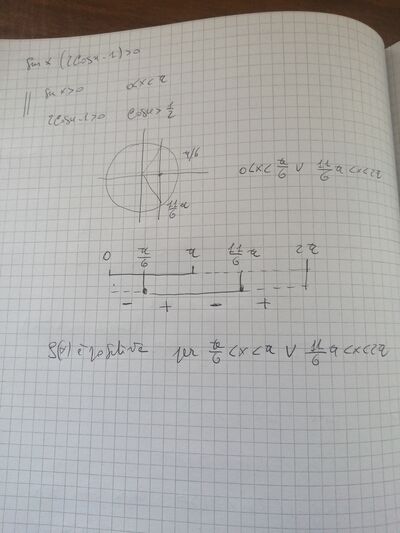 sin x (2cosx-1)>0
sin x>0 0<x<π
2cosx-1>0 cosx>1/2
π/6
11/6 π
0<x<π/6 ∨ 11/6 π<x<2π
0 π/6 π 11/6 π 2π
- + - +
f(x) è positiva per π/6<x<π ∨ 11/6 π<x<2π